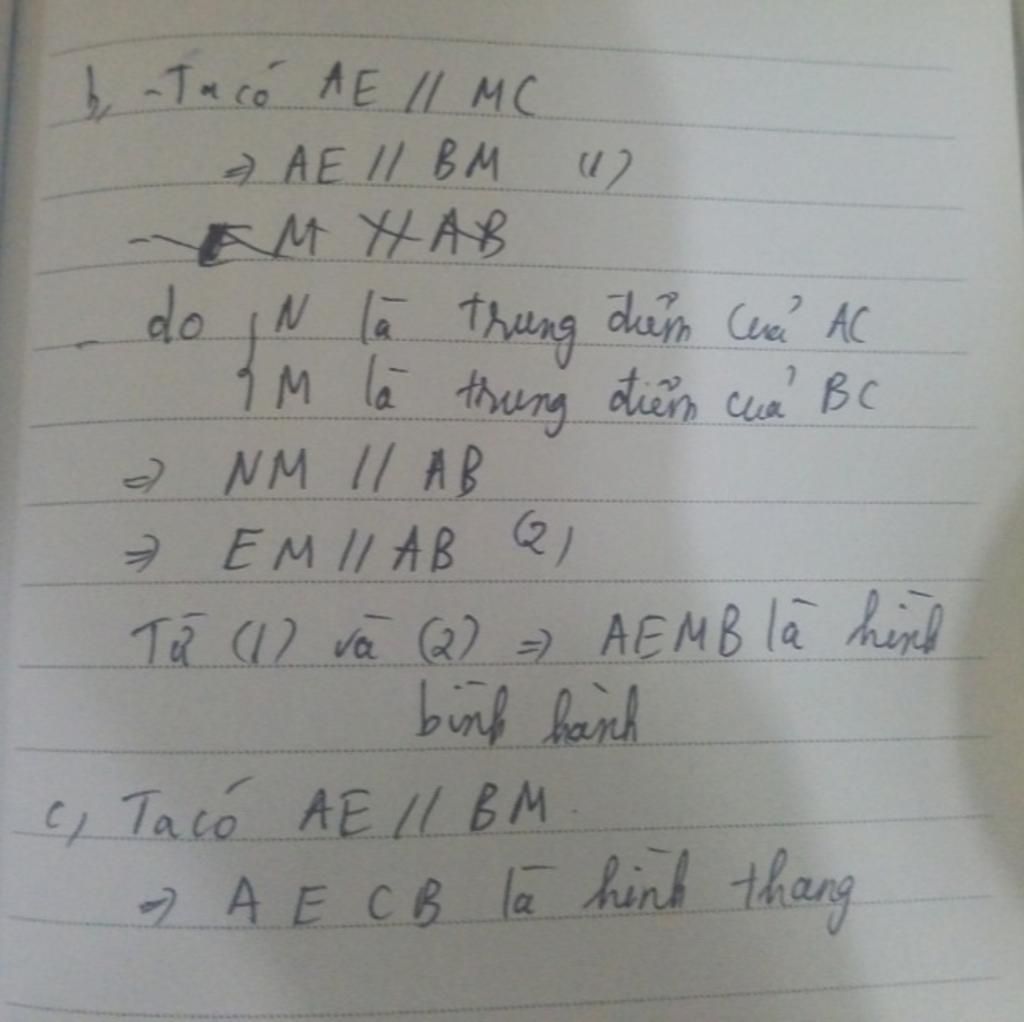 b, - Ta có AE // MC
⇒ AE // BM (1)
- EM // AB
- do { N là trung điểm của AC
M là trung điểm của BC
⇒ NM // AB
⇒ EM // AB (2)
Từ (1) và (2) ⇒ AEMB là hình
bình hành
c, Ta có AE // BM.
⇒ AECB là hình thang